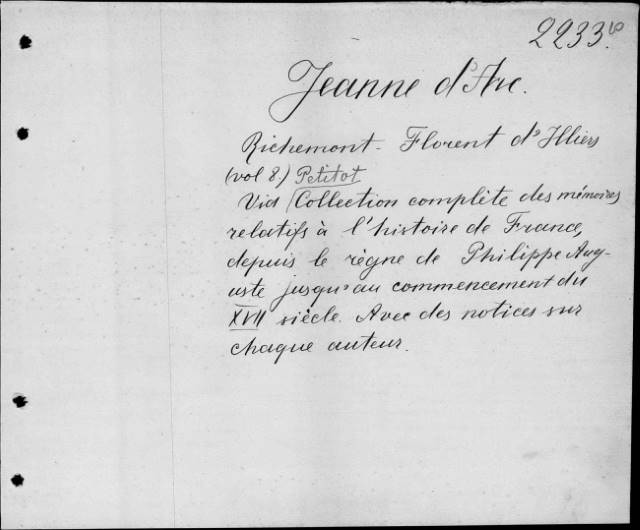 2233.
Jeanne d'Arc.
Richemont. Florent d'Illiers
(vol 8.) Petitot
Vid (Collection complète des mémoires
relatifs à l'histoire de France,
depuis le règne de Philippe Aug-
uste jusqu'au commencement du
XVII siècle. Avec des notices sur
chaque auteur.